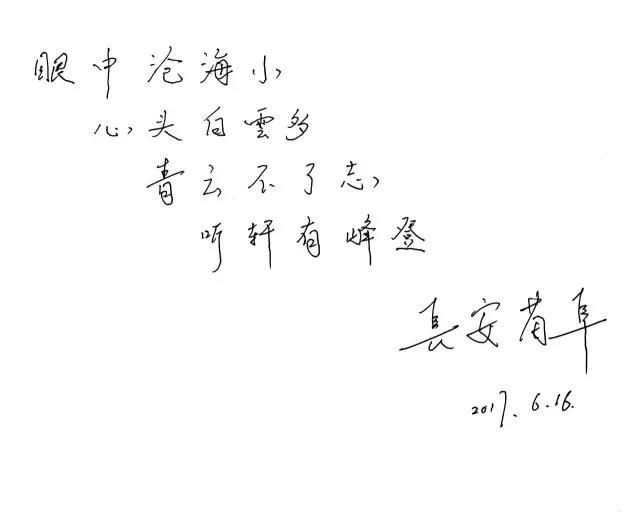 眼中沧海小
心头白雲多
青云不了志
听轩有峰登
長安莆阜
2017.6.16.